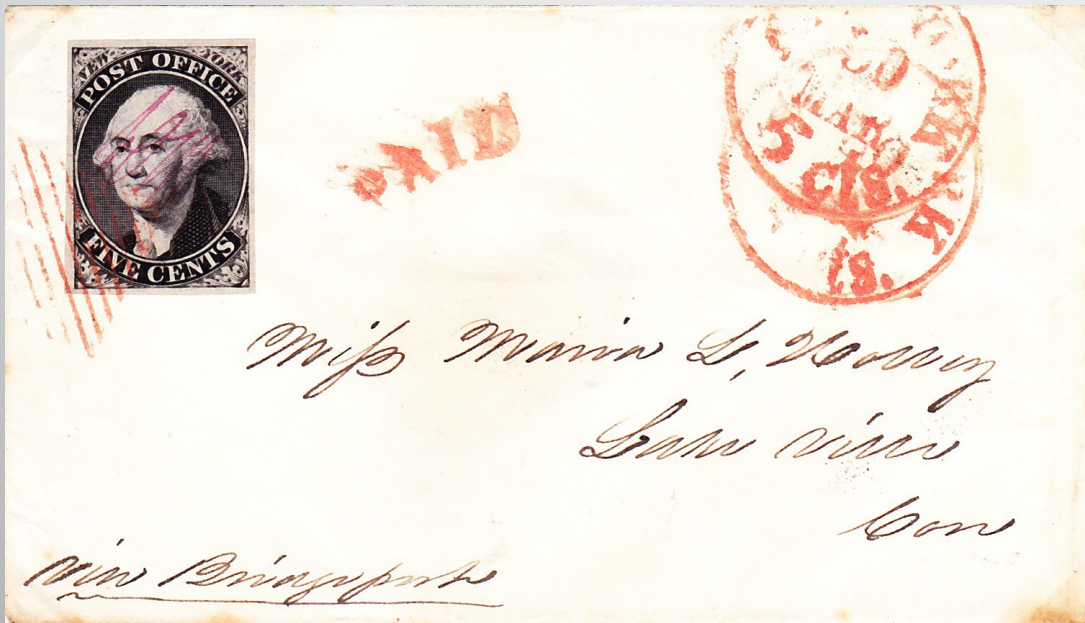 NEW YORK
POST OFFICE
FIVE CENTS
PAID
YORK
5 cts.
Miſs Maria L, Holley
Lake Ville
Con
via Bridgeport